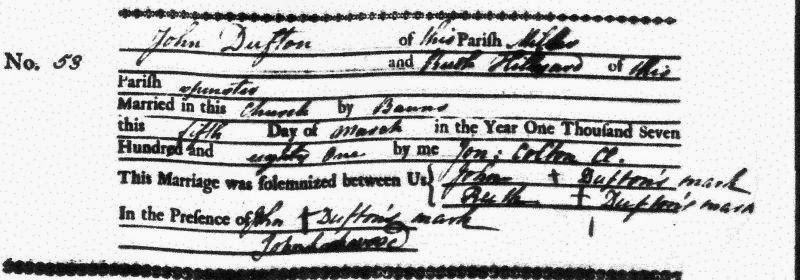 John Dufton of this Parish Miller
No. 53 and Ruth Hillyard of this
Parish spinster
Married in this Church by Banns
this fifth Day of March in the Year One Thousand Seven
Hundred and eighty One by me Jon: Colton Cl.
This Marriage was solemnized between Us John + Dufton's mark
Ruth + Dufton's mark
In the Presence of John + Dufton's mark
John